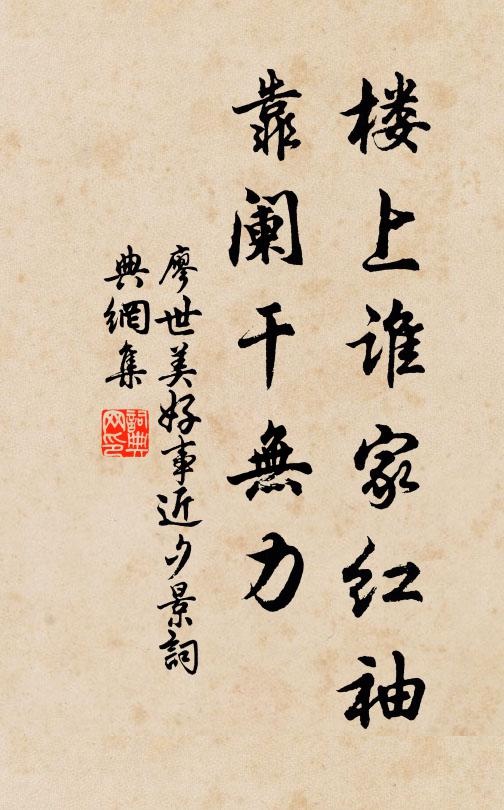 楼上谁家红袖
靠阑干無力
廖世美好事近夕景詞
典網集
詞典網印